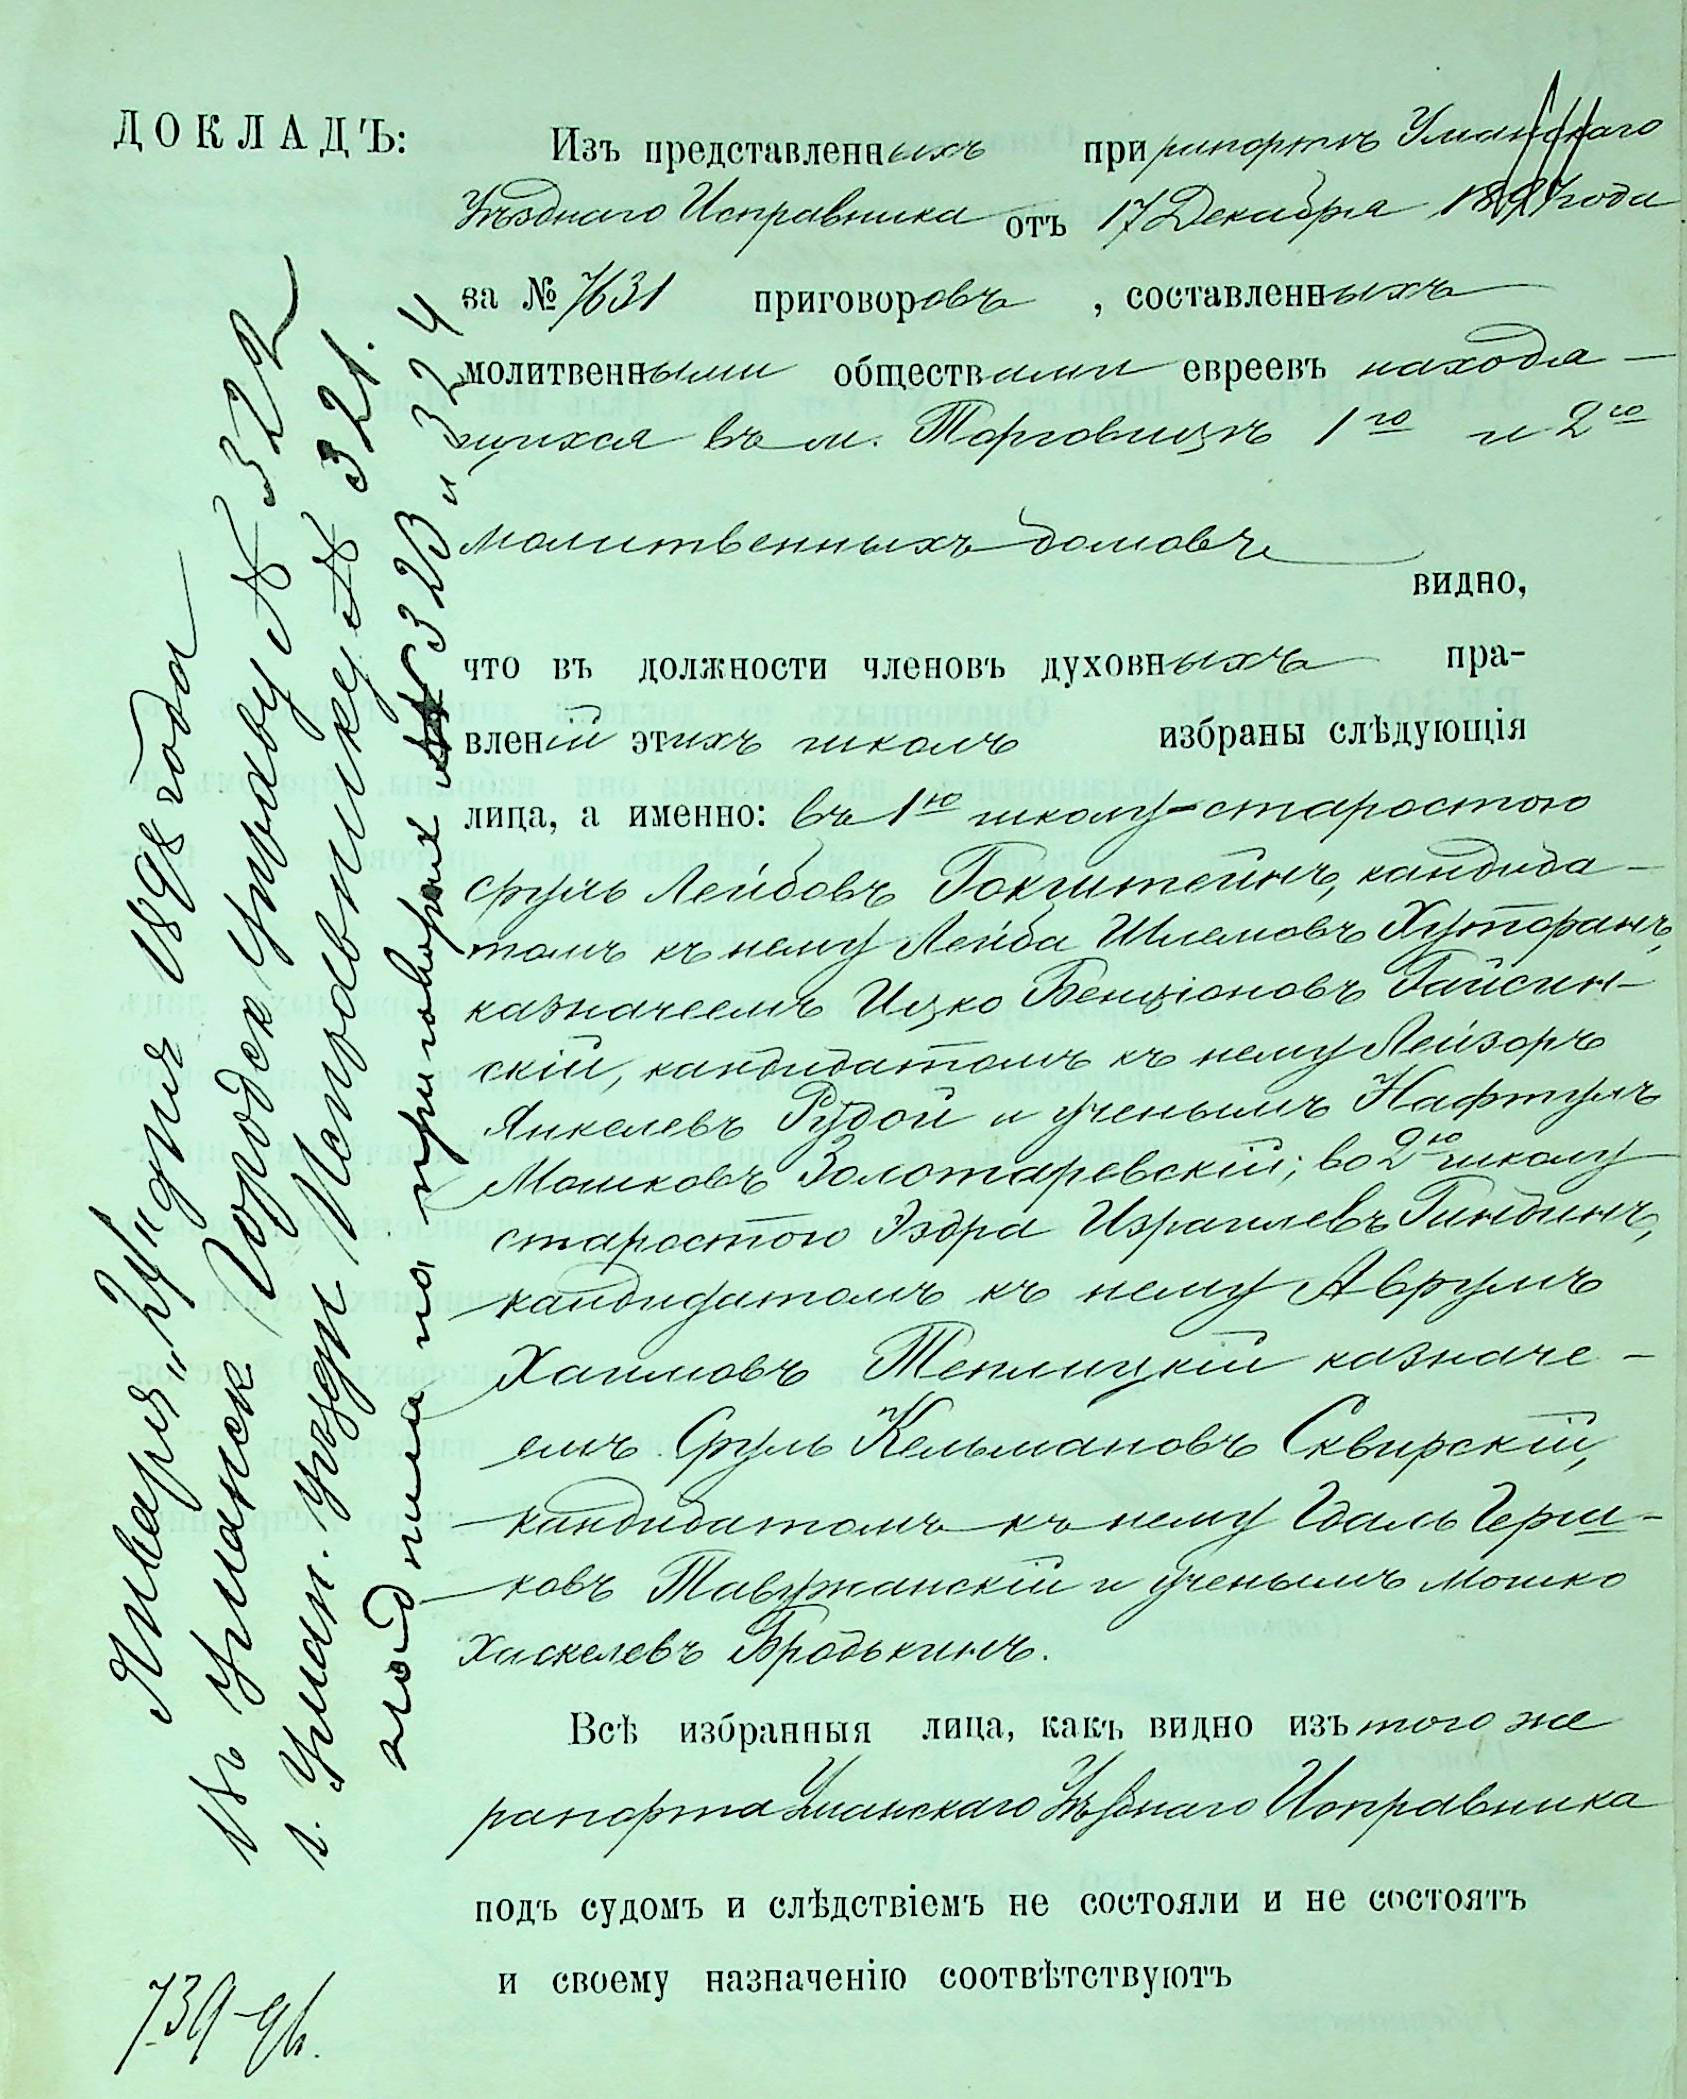 ДОКЛАДЪ:
Изъ представленныхъ при рапортѣ Уманскаго
Уѣзднаго Исправника отъ 17 Декабря 1897 года
за № 7631 приговоровъ, составленныхъ
молитвенными обществами евреевъ находя-
щихся въ м. Торговицѣ 1го и 2го
молитвенныхъ домовъ
видно,
что въ должности членовъ духовныхъ пра-
вленій этихъ школъ избраны слѣдующія
лица, а именно: въ 1ю школу-старостою
Сруль Лейбовъ Гокштейнъ, кандида-
томъ къ нему Лейба Шлемовъ Хуторанъ,
казначеемъ Ицко Бенціоновъ Гайсин-
скій, кандидатомъ къ нему Лейзоръ
Янкелевъ Рудой и ученымъ Нафтулъ
Мошковъ Золотаревскій; во 2ю школу
старостою Эздра Израилевъ Гиндинъ,
кандидатомъ къ нему Аврумъ
Хаимовъ Теплицкій казначе-
емъ Сруль Кельмановъ Сквирскій,
кандидатомъ къ нему Гдаль Герш-
ковъ Тавужанскій и ученымъ Мошко
Хаскелевъ Бродькинъ.
Всѣ избранныя лица, какъ видно изъ того же
рапорта Уманскаго Уѣзднаго Исправника
подъ судомъ и слѣдствіемъ не состояли и не состоятъ
и своему назначенію соотвѣтствуютъ
Января дня 1898 года
въ Уманск Городск Управу № 322
г. Уман. Уѣздн Исправнику № 321.
на приговорах № 323 и 324
739